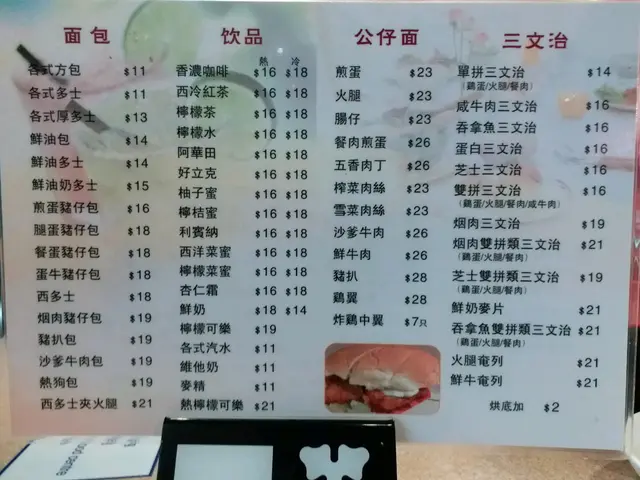 面包
各式方包 $11
各式多士 $11
各式厚多士 $13
鮮油包 $14
鮮油多士 $14
鮮油奶多士 $15
煎蛋豬仔包 $16
腿蛋豬仔包 $18
餐蛋豬仔包 $18
蛋牛豬仔包 $18
西多士 $18
烟肉豬仔包 $19
豬扒包 $19
沙爹牛肉包 $19
熱狗包 $19
西多士夾火腿 $21
饮品
熱 冷
香濃咖啡 $16 $18
西冷紅茶 $16 $18
檸檬茶 $16 $18
檸檬水 $16 $18
阿華田 $16 $18
好立克 $16 $18
柚子蜜 $16 $18
檸桔蜜 $16 $18
利賓納 $16 $18
西洋菜蜜 $16 $18
檸檬菜蜜 $16 $18
杏仁霜 $16 $18
鮮奶 $18 $14
檸檬可樂 $19
各式汽水 $11
維他奶 $11
麥精 $11
熱檸檬可樂 $21
公仔面
煎蛋 $23
火腿 $23
腸仔 $23
餐肉煎蛋 $26
五香肉丁 $26
榨菜肉絲 $23
雪菜肉絲 $23
沙爹牛肉 $26
鮮牛肉 $26
豬扒 $28
鷄翼 $28
炸鷄中翼 $7只
三文治
單拼三文治 $14
(鷄蛋/火腿/餐肉)
咸牛肉三文治 $16
吞拿魚三文治 $16
蛋白三文治 $16
芝士三文治 $16
雙拼三文治 $16
(鷄蛋/火腿/餐肉/咸牛肉)
烟肉三文治 $19
烟肉雙拼類三文治 $21
(鷄蛋/火腿/餐肉)
芝士雙拼類三文治 $19
(鷄蛋/火腿/餐肉)
鮮奶麥片 $21
吞拿魚雙拼類三文治 $21
(鷄蛋/火腿/餐肉)
火腿奄列 $21
鮮牛奄列 $21
烘底加 $2